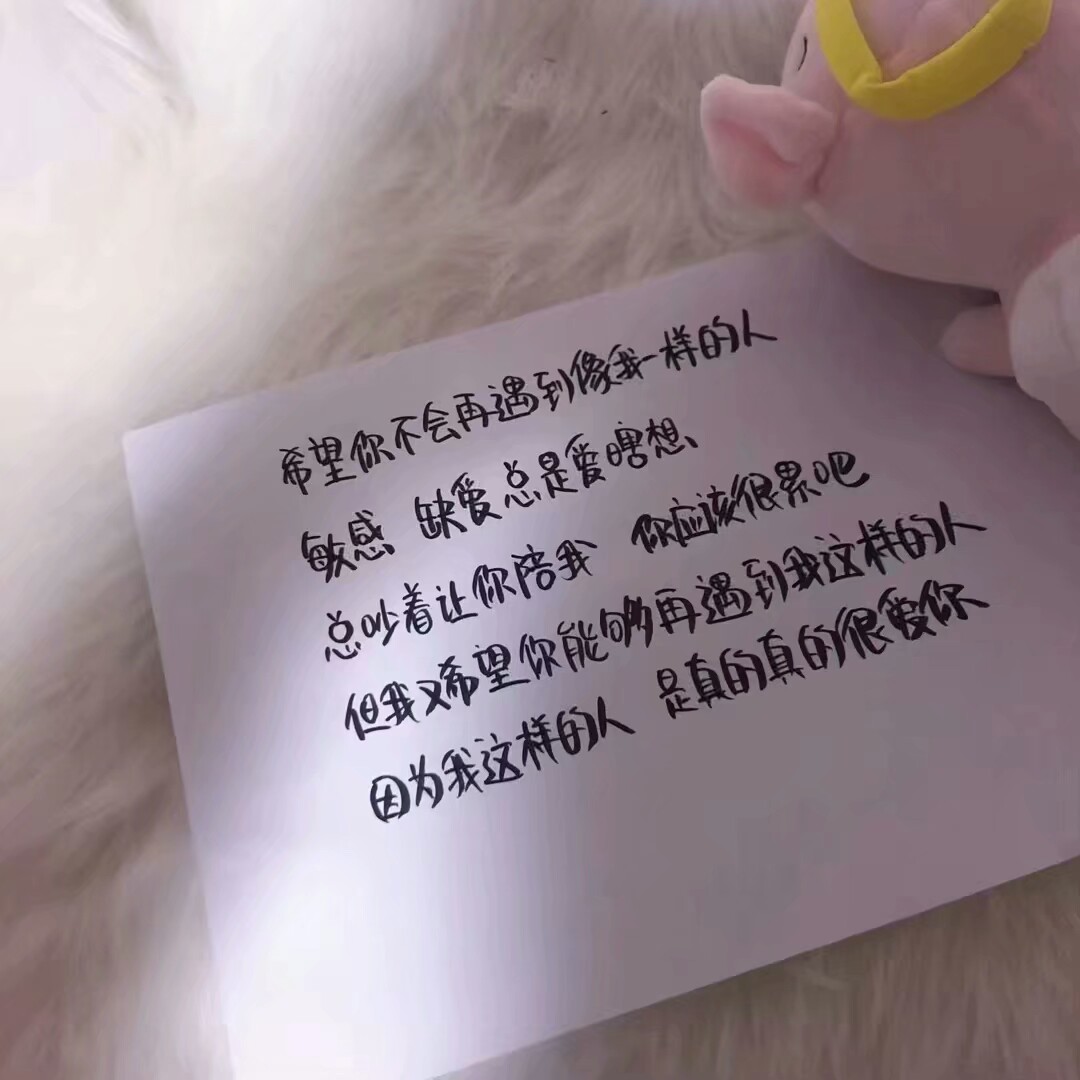 希望你不会再遇到像我一样的人
敏感 缺爱 总是爱瞎想、
总吵着让你陪我 你应该很累吧
但我又希望你能够再遇到我这样的人
因为我这样的人 是真的真的很爱你